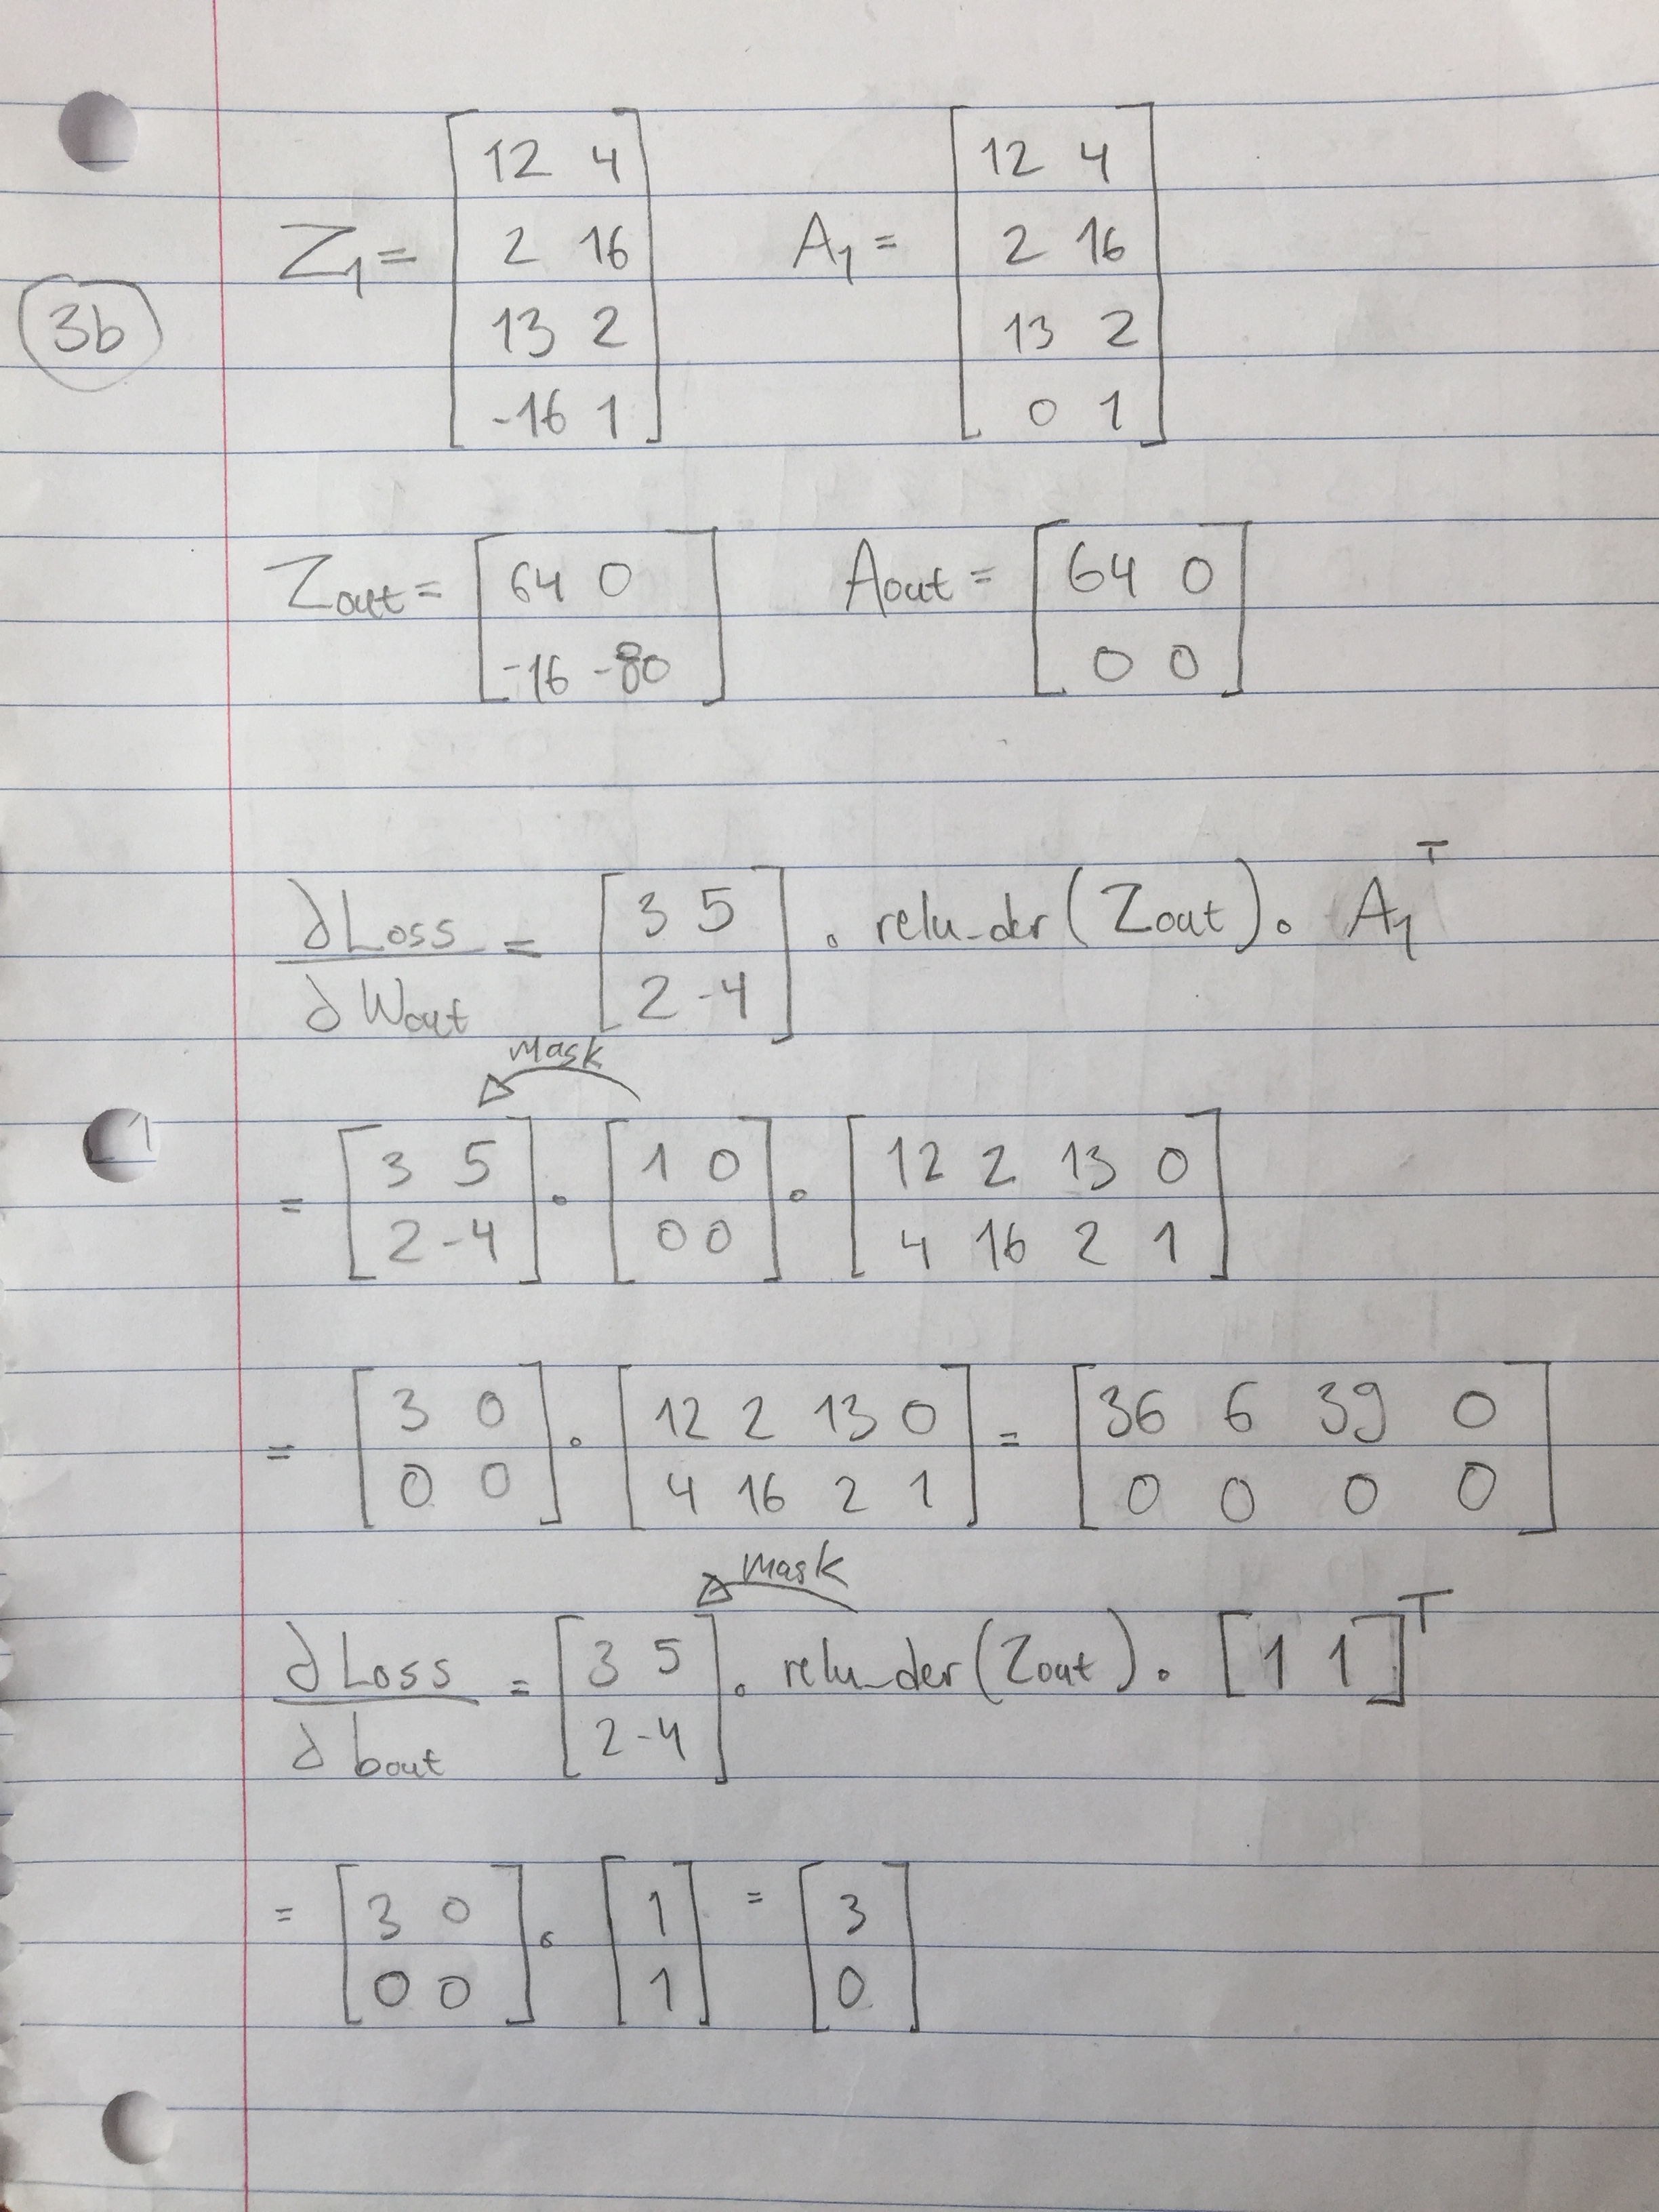 3b
Z₁ = [12 4; 2 16; 13 2; -16 1] A₁ = [12 4; 2 16; 13 2; 0 1]
Zout = [64 0; -16 -80] Aout = [64 0; 0 0]
∂Loss/∂Wout = [3 5; 2 -4] . relu_der(Zout) . A₁ᵀ
mask
= [3 5; 2 -4] . [1 0; 0 0] . [12 2 13 0; 4 16 2 1]
= [3 0; 0 0] . [12 2 13 0; 4 16 2 1] = [36 6 39 0; 0 0 0 0]
mask
∂Loss/∂bout = [3 5; 2 -4] . relu_der(Zout) . [1 1]ᵀ
= [3 0; 0 0] . [1; 1] = [3; 0]